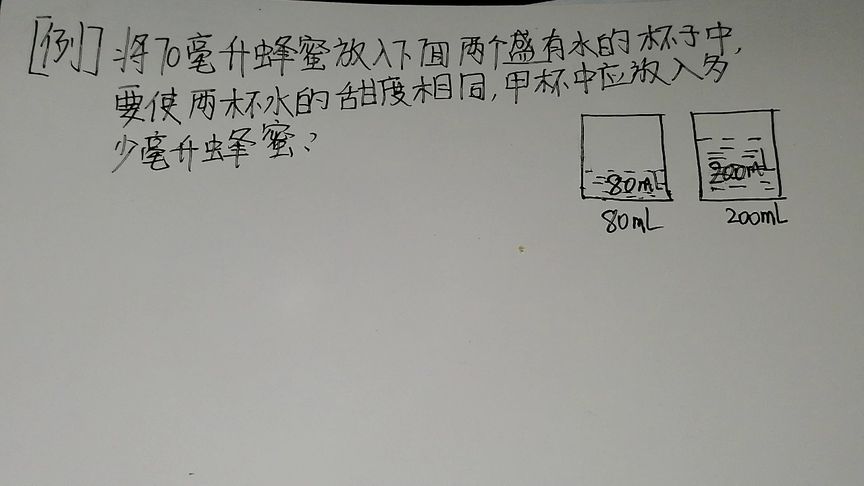 [例] 将70毫升蜂蜜放入下面两个盛有水的杯子中,
要使两杯水的甜度相同,甲杯中应放入多
少毫升蜂蜜?
80mL 200mL
80mL 200mL